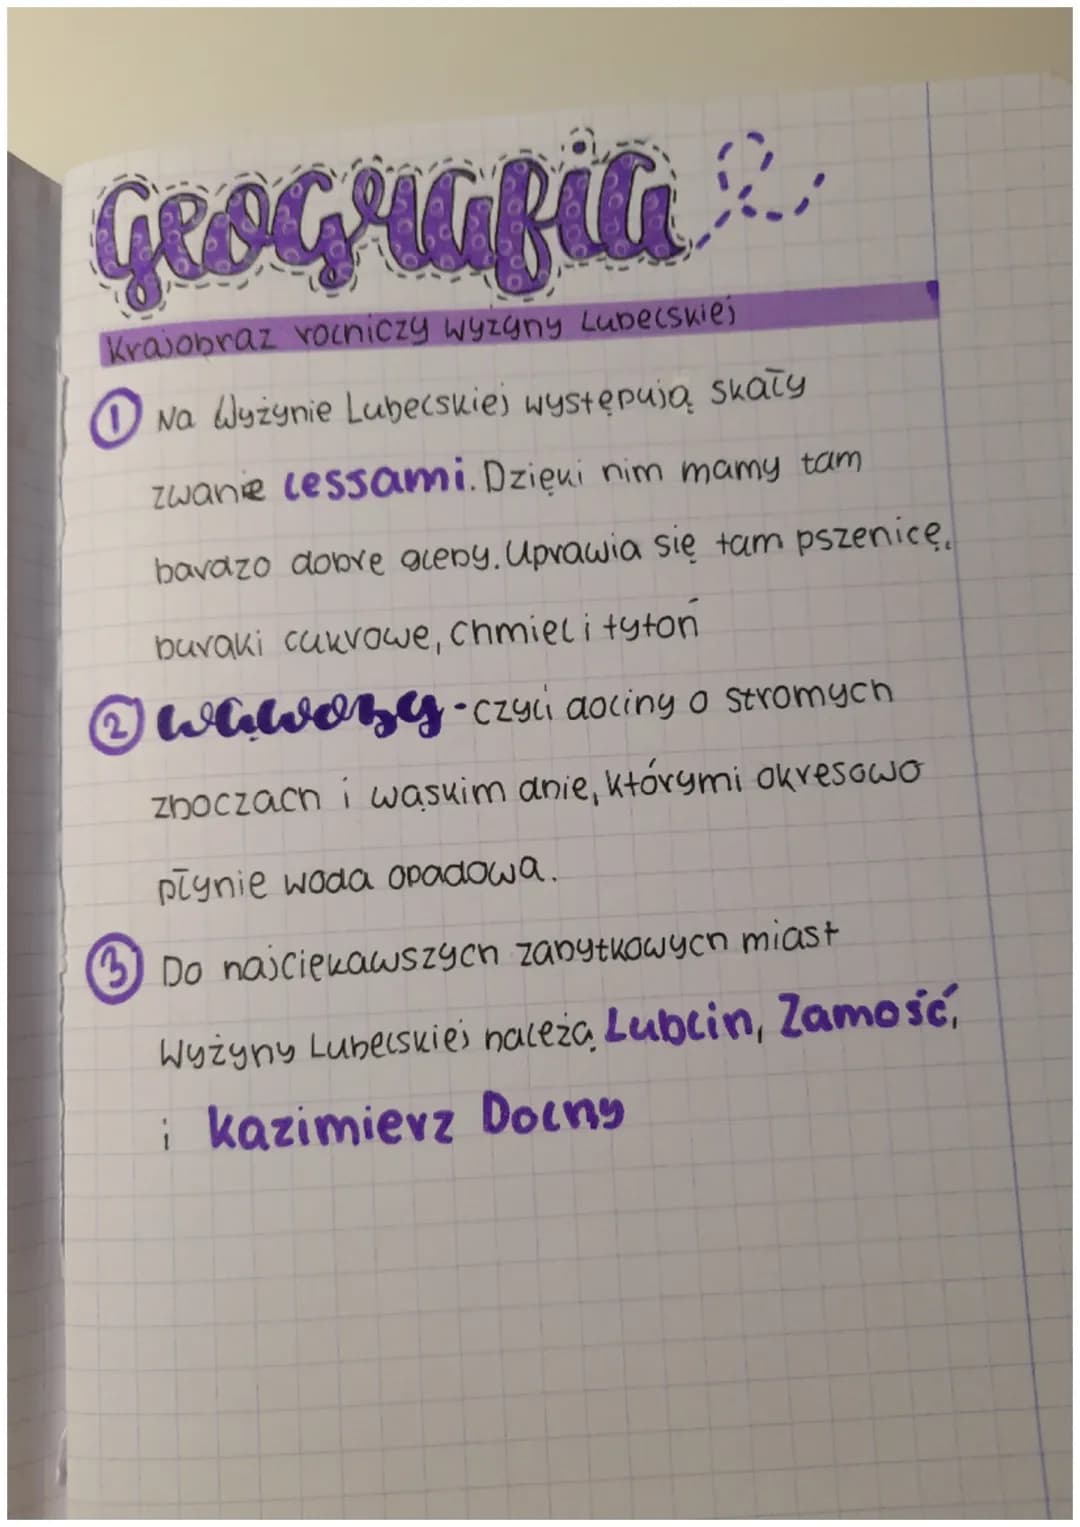 Geografia
Krajobraz rolniczy wyżyny Lubelskiej
1 Na Wyżynie Lubelskiej występują skały
zwanie lessami. Dzięki nim mamy tam
bardzo dobre gleby. Uprawia się tam pszenicę,
buraki cukrowe, chmiel i tytoń
2 wąwozy - czyli doliny o stromych
zboczach i wąskim dnie, którymi okresowo
płynie woda opadowa.
3 Do najciekawszych zabytkowych miast
Wyżyny Lubelskiej należą Lublin, Zamość,
i Kazimierz Dolny